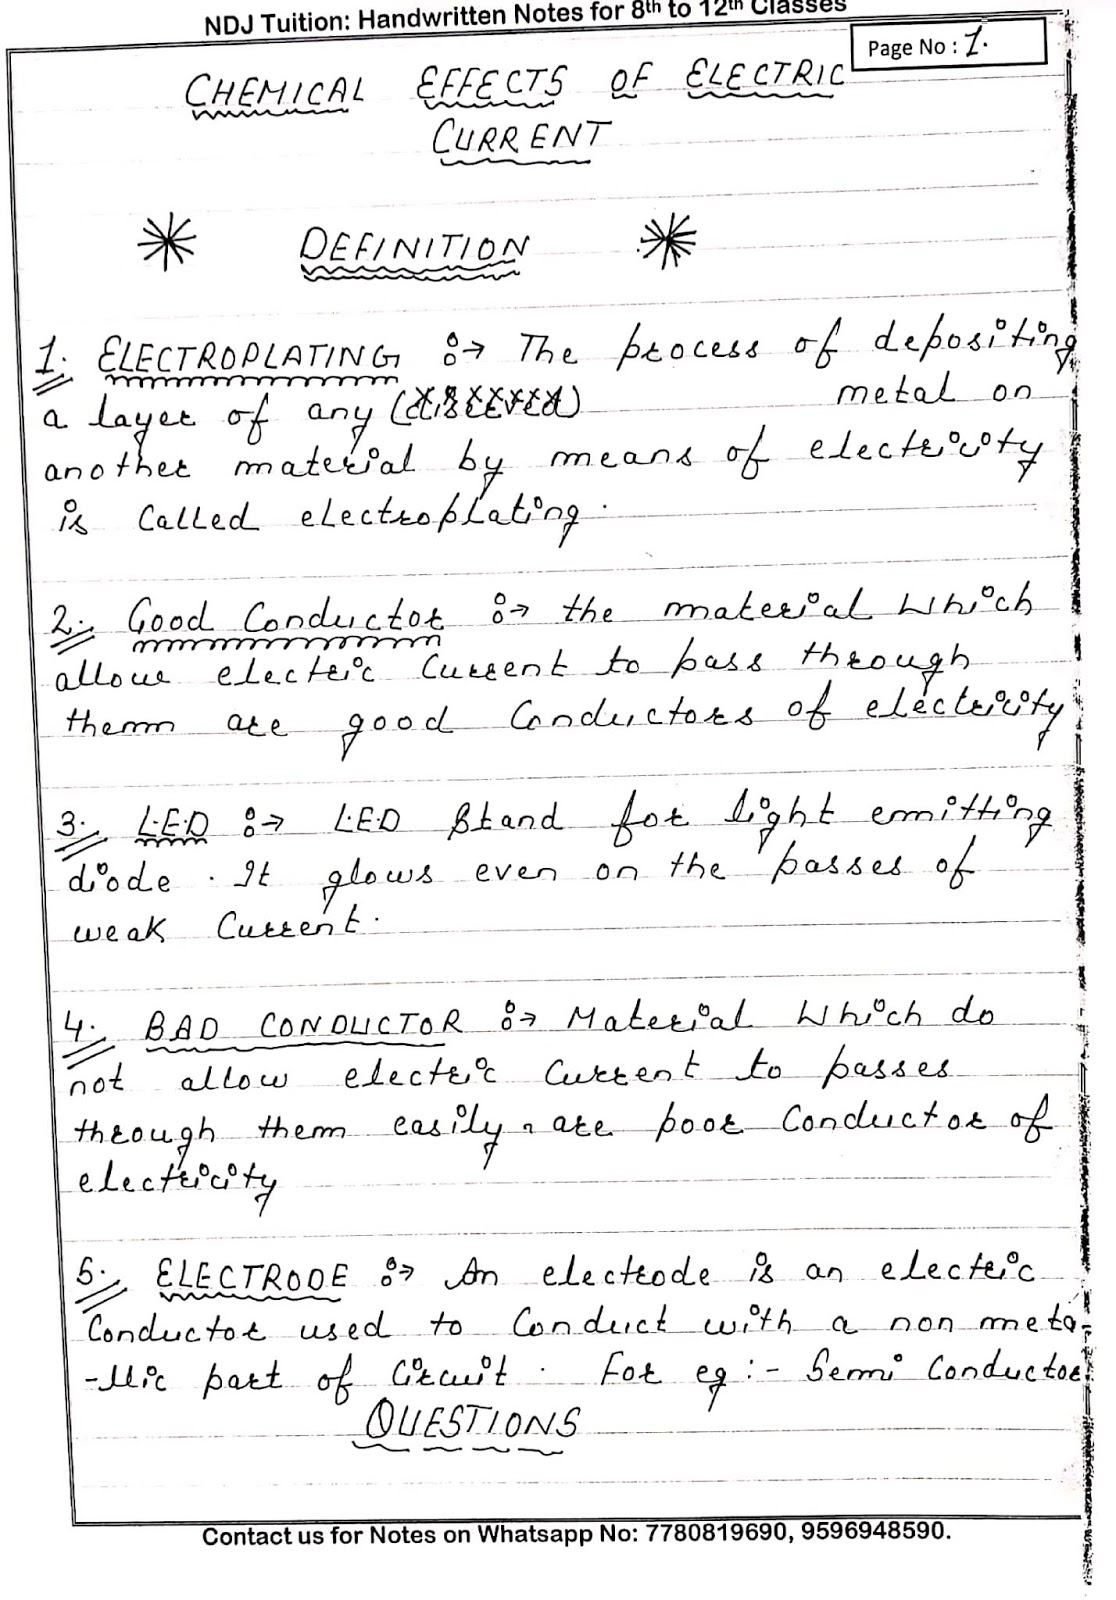 NDJ Tuition: Handwritten Notes for 8th to 12th Classes
Page No : 1.
CHEMICAL EFFECTS OF ELECTRIC
CURRENT
DEFINITION
1. ELECTROPLATING :→ The process of depositing
a layer of any metal on
another material by means of electricity
is Called electroplating.
2. Good Conductor :→ the material Which
allow electric Current to pass through
them are good Conductors of electricity
3. L.E.D :→ L.E.D Stand for light emitting
diode. It glows even on the passes of
weak Current.
4. BAD CONDUCTOR :→ Material Which do
not allow electric Current to passes
through them easily, are poor Conductor of
electricity
5. ELECTRODE :→ An electrode is an electric
Conductor used to Conduct with a non meta-
-llic part of Circuit. For eg :- Semi Conductor
QUESTIONS
Contact us for Notes on Whatsapp No: 7780819690, 9596948590.